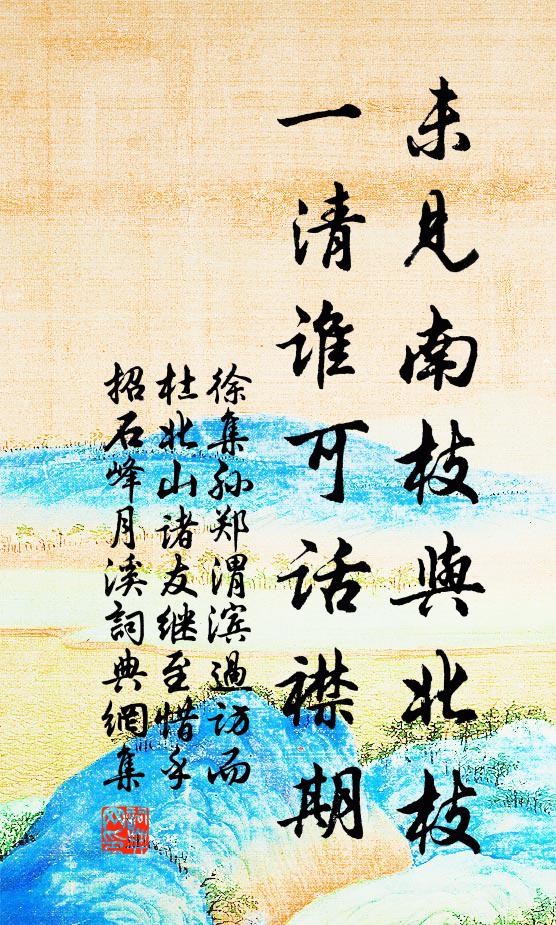 未見南枝與北枝
一清誰可話襟期
徐集孙郑渭滨過访而
杜北山诸友继至惜乎
招石峰月溪詞典網集